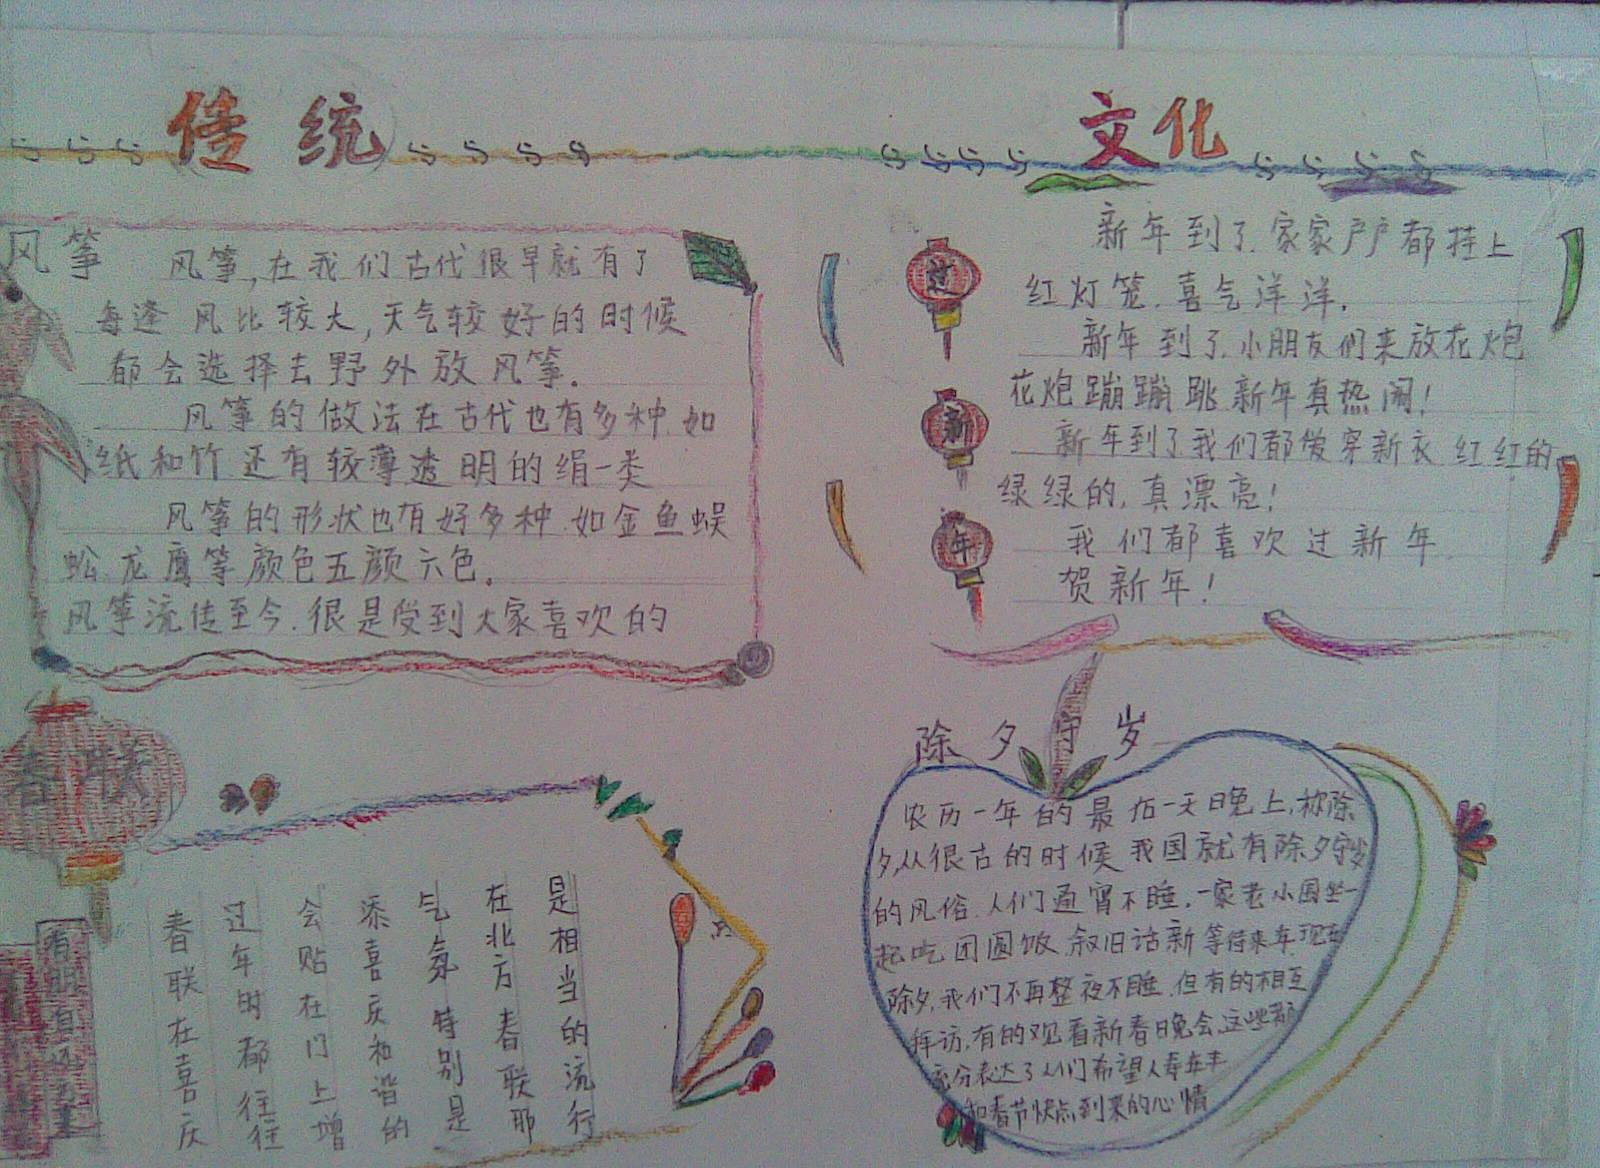 传统
文化
风筝
风筝,在我们古代很早就有了
每逢风比较大,天气较好的时候
都会选择去野外放风筝.
风筝的做法在古代也有多种.如
纸和竹还有较薄透明的绢一类
风筝的形状也有好多种.如金鱼蜈
蚣.龙鹰等颜色五颜六色.
风筝流传至今.很是受到大家喜欢的
过新年
新年到了.家家户户都挂上
红灯笼.喜气洋洋.
新年到了.小朋友们来放花炮
花炮蹦蹦跳.新年真热闹!
新年到了我们都爱穿新衣红红的
绿绿的.真漂亮!
我们都喜欢过新年.
贺新年!
春联
春联在喜庆
过年时都往往
会贴在门上增
添喜庆和谐的
气氛特别是
在北方春联那
是相当的流行
除夕守岁
农历一年的最后一天晚上,称除
夕,从很古的时候我国就有除夕守岁
的风俗.人们通宵不睡.一家老小围坐一
起吃团圆饭.叙旧话新等待来年.现在
除夕,我们不再整夜不睡.但有的相互
拜访,有的观看新春晚会,这些都
充分表达了人们希望人寿年丰
和春节快点到来的心情